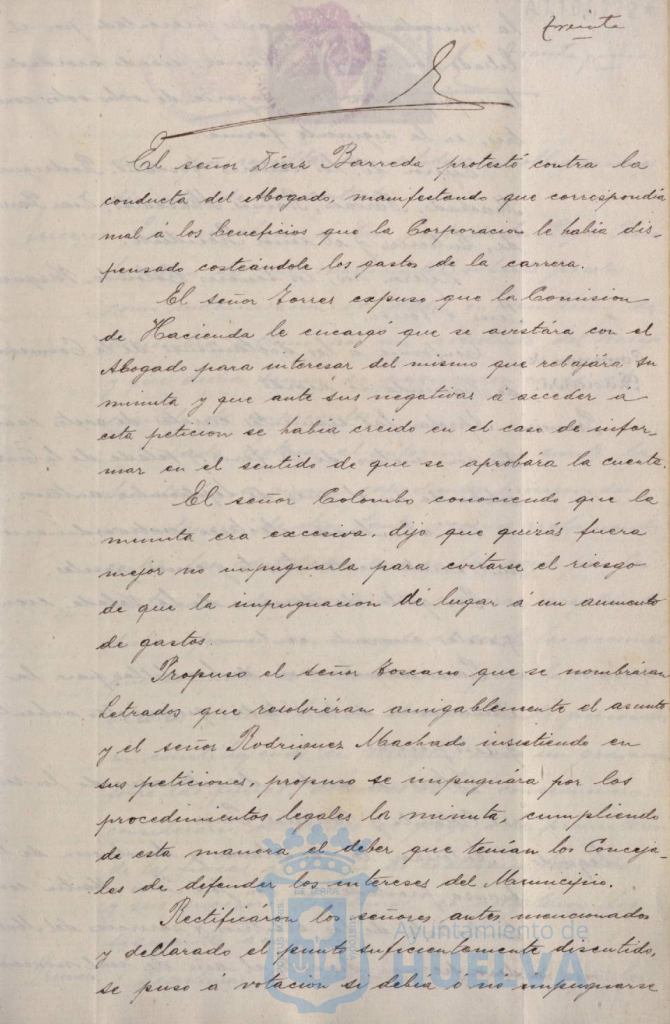 treinta
El señor Díaz Barreda protestó contra la
conducta del Abogado, manifestando que correspondía
mal á los beneficios que la Corporacion le habia dis-
pensado costeándole los gastos de la carrera.
El señor Torres expuso que la Comision
de Hacienda le encargó que se avistára con el
Abogado para interesar del mismo que rebajára su
minuta y que ante sus negativas á acceder á
esta peticion se habia creido en el caso de infor-
mar en el sentido de que se aprobára la cuenta.
El señor Colombo conociendo que la
minuta era excesiva, dijo que quizás fuera
mejor no impugnarla para evitarse el riesgo
de que la impugnacion dé lugar á un aumento
de gastos.
Propuso el señor Toscano que se nombráran
Letrados que resolviéran amigablemente el asunto
y el señor Rodriguez Machado insistiendo en
sus peticiones, propuso se impugnára por los
procedimientos legales la minuta, cumpliendo
de esta manera el deber que tenían los Conceja-
les de defender los intereses del Municipio.
Rectificáron los señores antes mencionados
y declarado el punto suficientemente discutido,
se puso á votacion si debía ó nó impugnarse
Ayuntamiento de
HUELVA